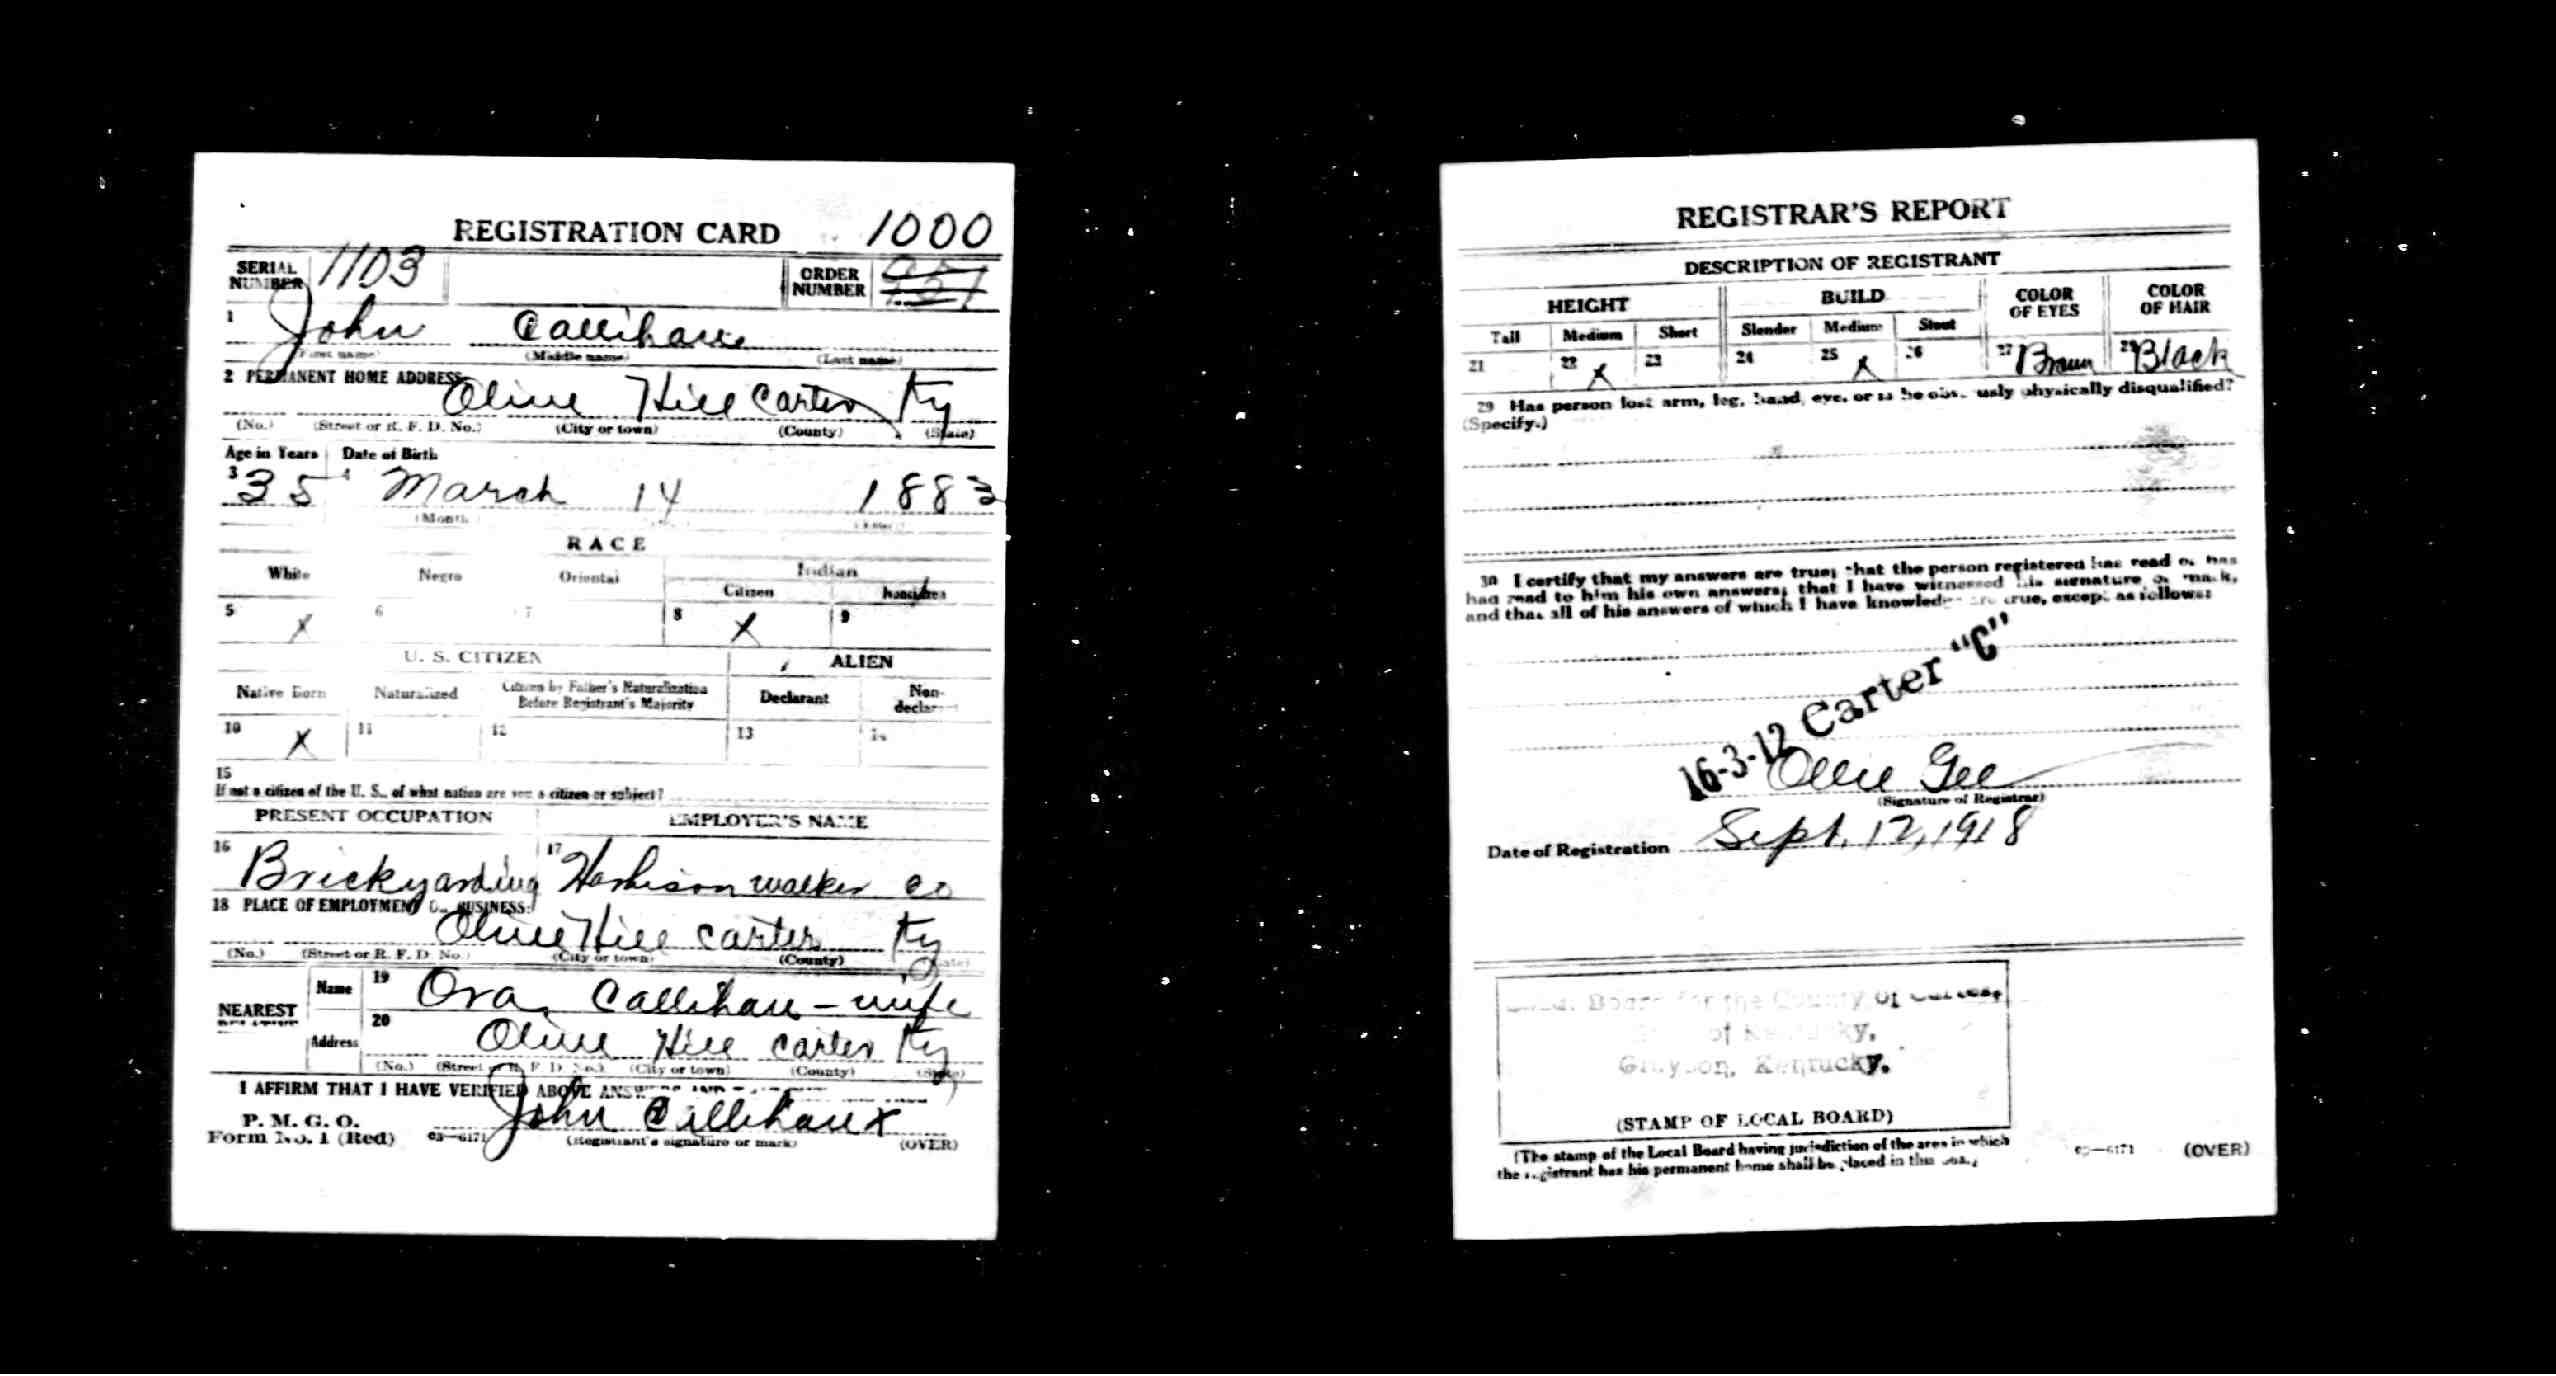 REGISTRATION CARD 1000
SERIAL NUMBER 1103 ORDER NUMBER
1 John Callihan
(First name) (Middle name) (Last name)
2 PERMANENT HOME ADDRESS
Olive Hill Carter Ky
(No.) (Street or R. F. D. No.) (City or town) (County) (State)
Age in Years Date of Birth
3 35 4 March 14 1883
(Month)
RACE
White Negro Oriental Indian
Citizen
5 X 6 7 8 X 9
U. S. CITIZEN ALIEN
Native Born Naturalized Citizen by Father's Naturalization Before Registrant's Majority Declarant Non-declarant
10 X 11 12 13 14
15
If not a citizen of the U. S., of what nation are you a citizen or subject?
PRESENT OCCUPATION EMPLOYER'S NAME
16 Brickyarding 17 Harbison walker co
18 PLACE OF EMPLOYMENT OR BUSINESS:
Olive Hill Carter Ky
(No.) (Street or R. F. D. No.) (City or town) (County) (State)
NEAREST RELATIVE Name 19 Ora Callihan - wife
Address 20 Olive Hill Carter Ky
(No.) (Street or R. F. D. No.) (City or town) (County) (State)
I AFFIRM THAT I HAVE VERIFIED ABOVE ANSWERS AND
P. M. G. O.
Form No. 1 (Red) 03—6171 John Callihan x
(Registrant's signature or mark) (OVER)
REGISTRAR'S REPORT
DESCRIPTION OF REGISTRANT
HEIGHT BUILD COLOR OF EYES COLOR OF HAIR
Tall Medium Short Slender Medium Stout
21 22 X 23 24 25 X 26 27 Brown 28 Black
29 Has person lost arm, leg, hand, eye, or is he obviously physically disqualified?
(Specify.)
30 I certify that my answers are true; that the person registered has read or has
had read to him his own answers; that I have witnessed his signature or mark,
and that all of his answers of which I have knowledge are true, except as follows:
16-3-12 Carter "C"
Ollie Gee
(Signature of Registrar)
Date of Registration Sept. 12, 1918
Local Board for the County of Carter,
of Kentucky,
Grayson, Kentucky.
(STAMP OF LOCAL BOARD)
(The stamp of the Local Board having jurisdiction of the area in which
the registrant has his permanent home shall be placed in this box.)
03—6171 (OVER)